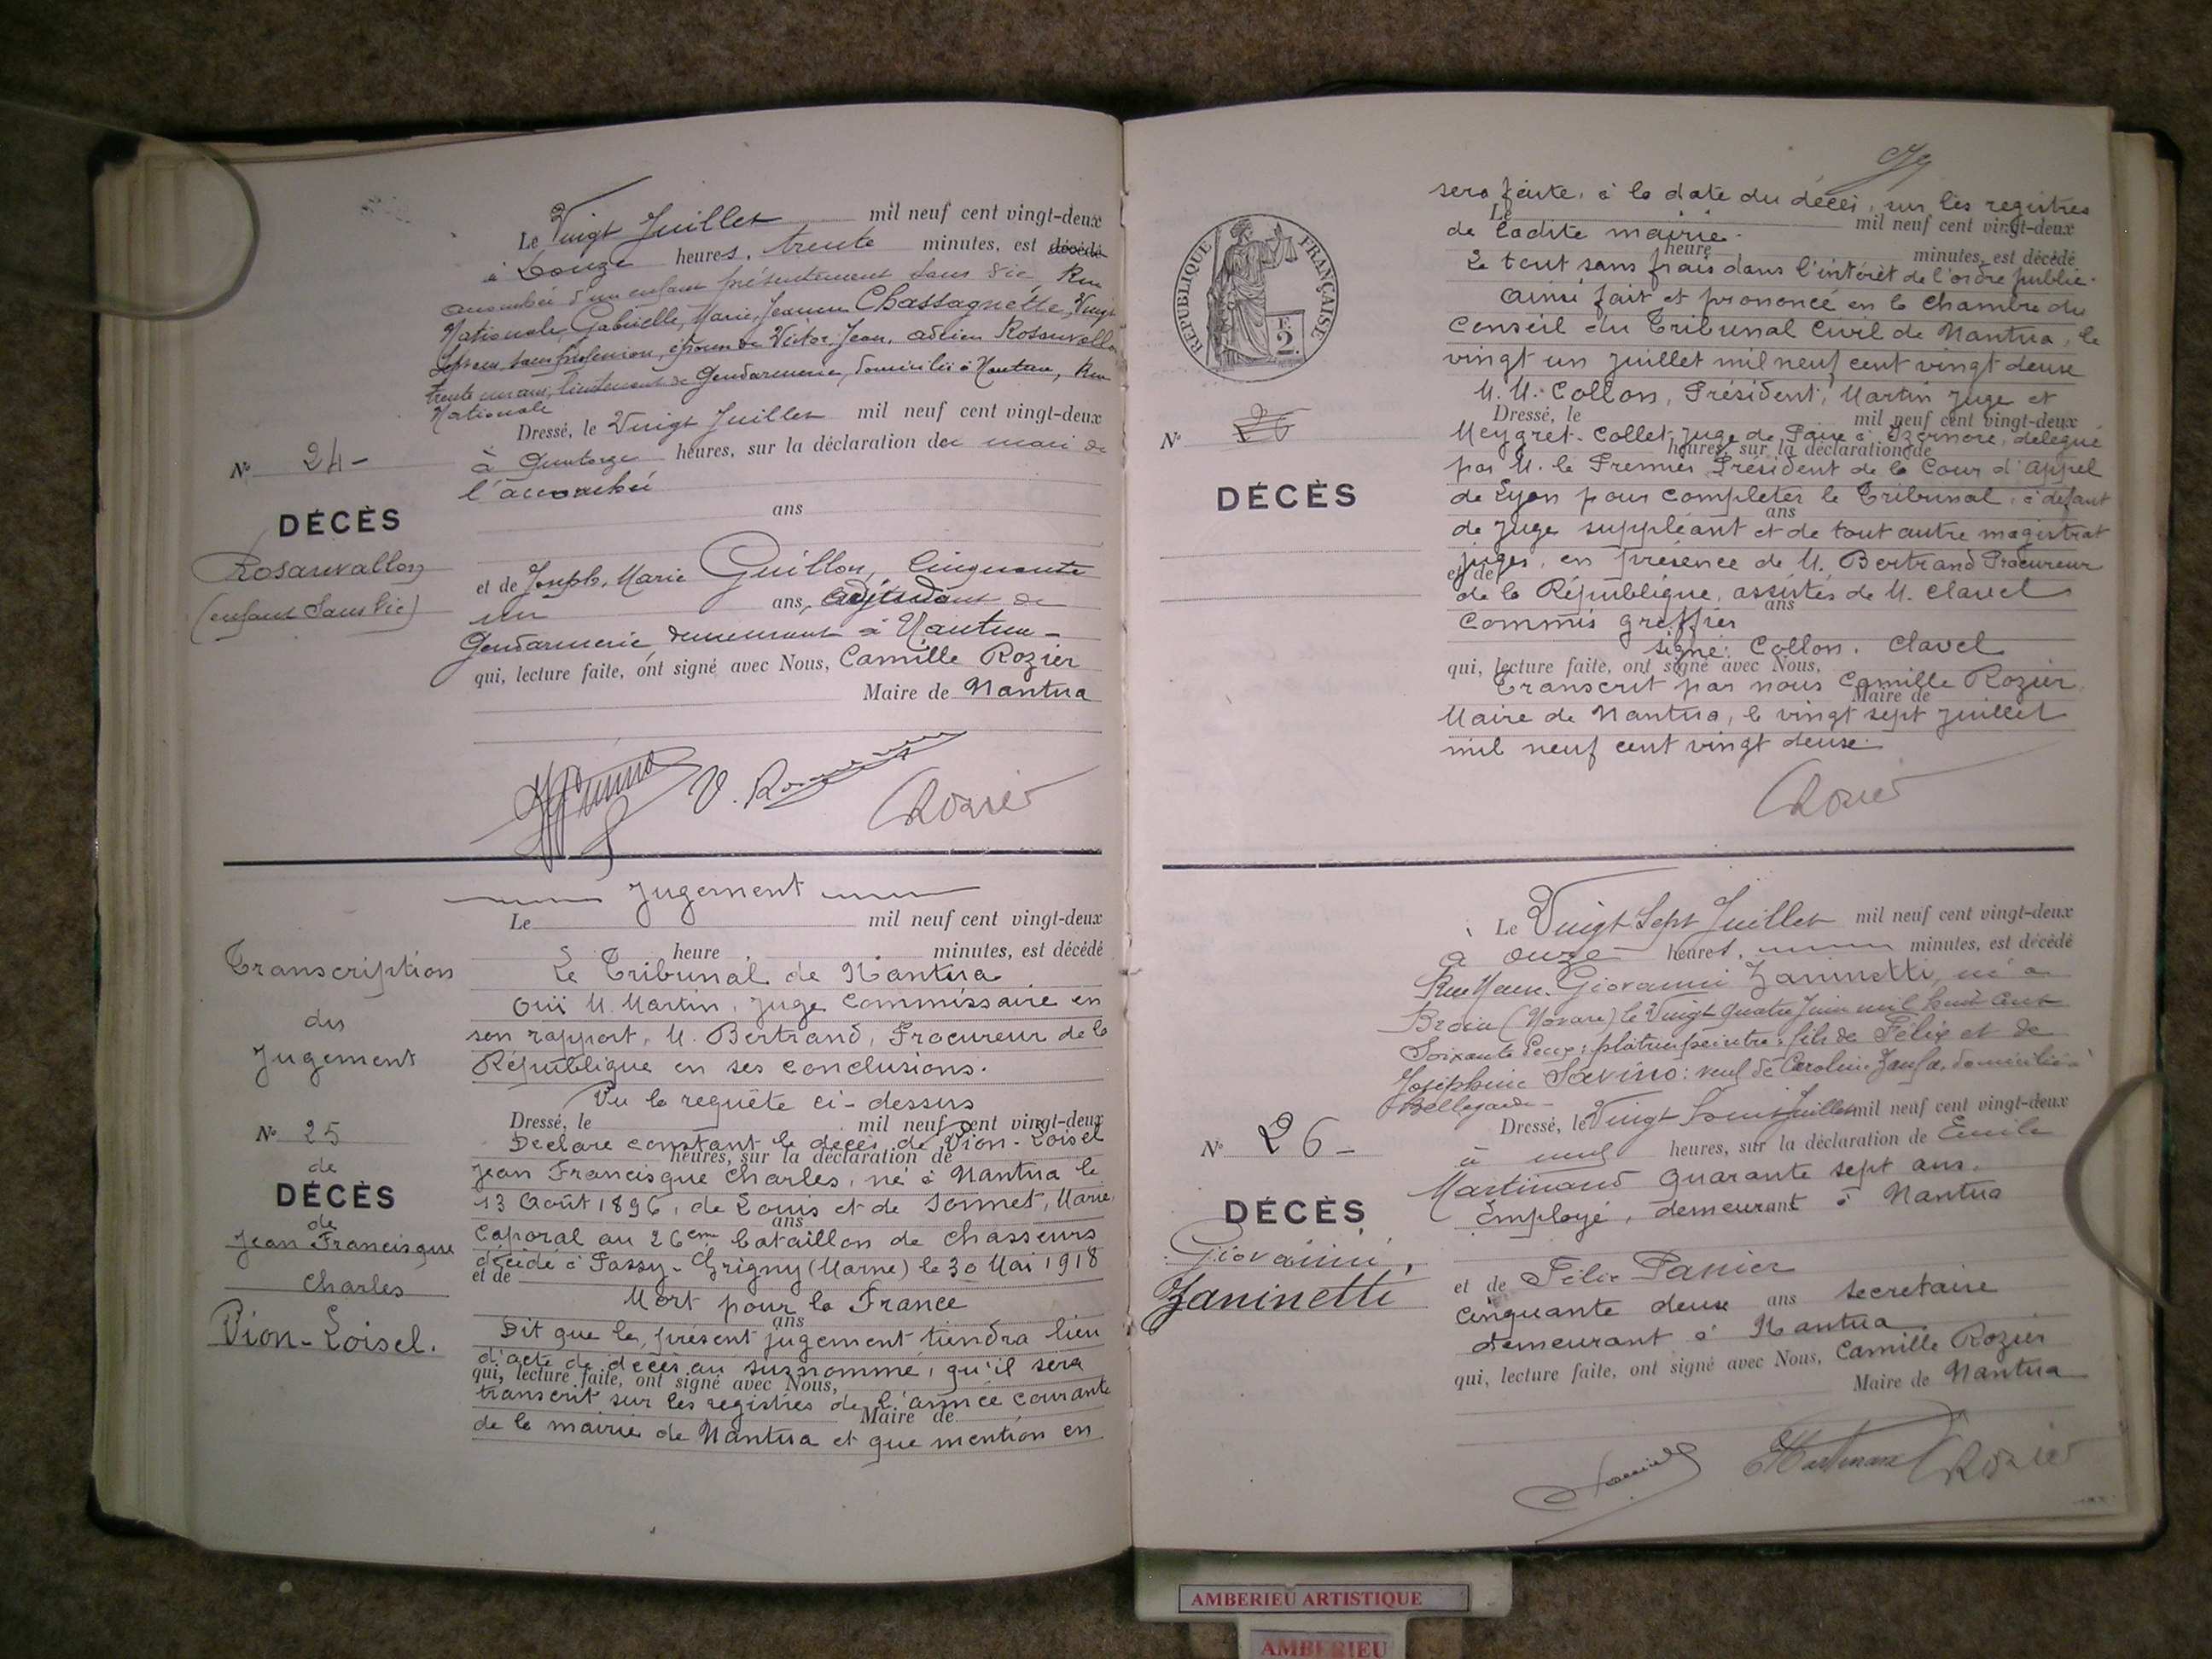 Le Vingt Juillet mil neuf cent vingt-deux
à Douze heures, trente minutes, est décédé
accouchée d'un enfant présentement sans vie, Rue
Nationale, Gabrielle, Marie, Jeanne Chassagnette, Vingt
sans profession, épouse de Victor, Jean, Adrien Rosanvallon
trente un ans, lieutenant de Gendarmerie, domiciliés à Nantua, Rue
Nationale
Dressé, le Vingt Juillet mil neuf cent vingt-deux
à Quatorze heures, sur la déclaration du mari de
l'accouchée
ans
et de Joseph, Marie Guillon, Cinquante
un ans, adjudant de
Gendarmerie demeurant à Nantua -
qui, lecture faite, ont signé avec Nous, Camille Rozier
Maire de Nantua
V. Rosanvallon
CRozier
N° 24 -
DÉCÈS
Rosanvallon
(enfant sans vie)
Jugement
Le mil neuf cent vingt-deux
heure minutes, est décédé
Le Tribunal de Nantua
Ouï M. Martin, juge commissaire en
son rapport, M. Bertrand, Procureur de la
République en ses conclusions.
Vu la requête ci-dessus
Dressé, le mil neuf cent vingt-deux
Déclare constant le décès de Vion-Loisel
heures, sur la déclaration de
Jean Francisque Charles, né à Nantua le
13 Août 1896, de Louis et de Sonnet, Marie,
ans
Caporal au 26eme bataillon de chasseurs
décédé à Passy-Grigny (Marne) le 30 Mai 1918
et de
Mort pour la France
ans
Dit que le présent jugement tiendra lieu
d'acte de décès au susnommé, qu'il sera
qui, lecture faite, ont signé avec Nous,
transcrit sur les registres de l'année courante
Maire de
de la mairie de Nantua et que mention en
Transcription
du
Jugement
N° 25
de
DÉCÈS
de
Jean Francisque
Charles
Vion-Loisel.
sera faite, à la date du décès, sur les registres
Le mil neuf cent vingt-deux
de ladite mairie.
heure minutes, est décédé
Le tout sans frais dans l'intérêt de l'ordre public.
Ainsi fait et prononcé en la chambre du
Conseil du Tribunal Civil de Nantua, le
vingt un juillet mil neuf cent vingt deux
M. M. Collon, Président, Martin juge et
Dressé, le mil neuf cent vingt-deux
Meygret-Collet, juge de Paix à Izernore, délégué
heures, sur la déclaration de
par M. le Premier Président de la Cour d'Appel
de Lyon pour compléter le Tribunal, à défaut
ans
de juge suppléant et de tout autre magistrat
juges, en présence de M. Bertrand Procureur
et de
de la République, assistés de M. Clavel
ans
commis greffier
signé: Collon. Clavel
qui, lecture faite, ont signé avec Nous,
Transcrit par nous Camille Rozier
Maire de
Maire de Nantua, le vingt sept juillet
mil neuf cent vingt deux.
CRozier
RÉPUBLIQUE FRANÇAISE
2F.
N° 26
DÉCÈS
Le Vingt Sept Juillet mil neuf cent vingt-deux
à onze heures, minutes, est décédé
Giovanni Zaninetti, né à
(Novare) le Vingt quatre Juin mil huit cent
Soixante Deux; plâtrier peintre; fils de Félix et de
Joséphine Savino; veuf de Caroline domicilié à
Bellegarde
Dressé, le Vingt huit Juillet mil neuf cent vingt-deux
à neuf heures, sur la déclaration de Emile
Martinand Quarante sept ans,
Employé, demeurant à Nantua
et de Félix Panier
cinquante deux ans secretaire
demeurant à Nantua
qui, lecture faite, ont signé avec Nous, Camille Rozier
Maire de Nantua
Panier EMartinand CRozier
N° 26 -
DÉCÈS
Giovanni,
Zaninetti
AMBERIEU ARTISTIQUE
AMBERIEU